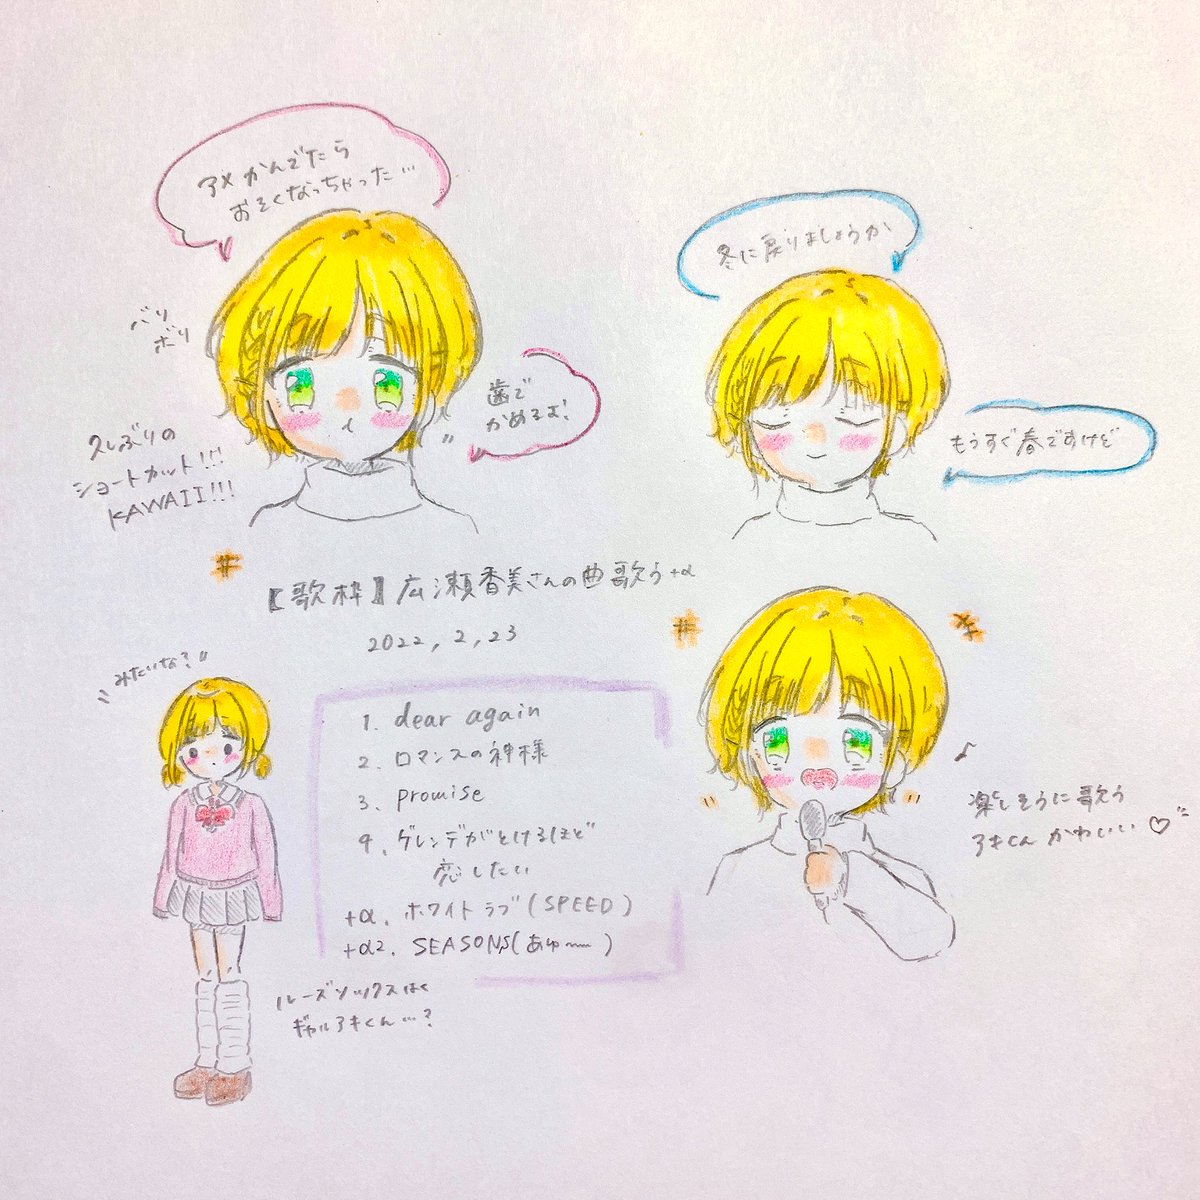 アメかんでたら
おそくなっちゃった…
バリ
ボリ
歯で
かめるよ!
久しぶりの
ショートカット!!!
KAWAII!!!
冬に戻りましょうか
もうすぐ春ですけど
【歌枠】広瀬香美さんの曲歌う+α
2022,2,23
みたいな?
1. dear again
2. ロマンスの神様
3. promise
4. ゲレンデがとけるほど
恋したい
+α. ホワイトラブ(SPEED)
+α2. SEASONS(あゆ〜)
ルーズソックスはく
ギャルアキくん…?
♪
楽しそうに歌う
アキくん かわいい♡